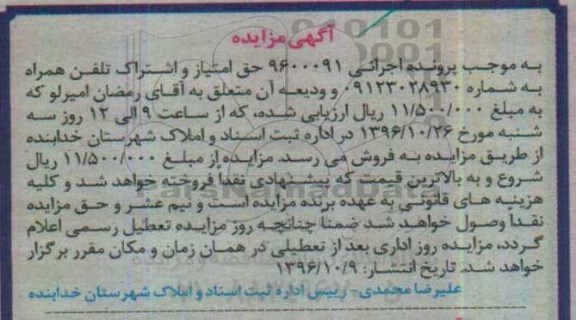 آگهی مزایده
به موجب پرونده اجرائی ۹۶۰۰۰۹۱ حق امتیاز و اشتراک تلفن همراه
به شماره ۰۹۱۲۳۰۲۸۹۳۰ و ودیعه آن متعلق به آقای رمضان امیرلو که
به مبلغ ۱۱/۵۰۰/۰۰۰ ریال ارزیابی شده، که از ساعت ۹ الی ۱۲ روز سه
شنبه مورخ ۱۳۹۶/۱۰/۲۶ در اداره ثبت اسناد و املاک شهرستان خدابنده
از طریق مزایده به فروش می رسد. مزایده از مبلغ ۱۱/۵۰۰/۰۰۰ ریال
شروع و به بالاترین قیمت که پیشنهادی نقدا فروخته خواهد شد و کلیه
هزینه های قانونی به عهده برنده مزایده است و نیم عشر و حق مزایده
نقدا وصول خواهد شد ضمنا چنانچه روز مزایده تعطیل رسمی اعلام
گردد، مزایده روز اداری بعد از تعطیلی در همان زمان و مکان مقرر برگزار
خواهد شد. تاریخ انتشار: ۱۳۹۶/۱۰/۹
علیرضا محمدی - رییس اداره ثبت اسناد و املاک شهرستان خدابنده